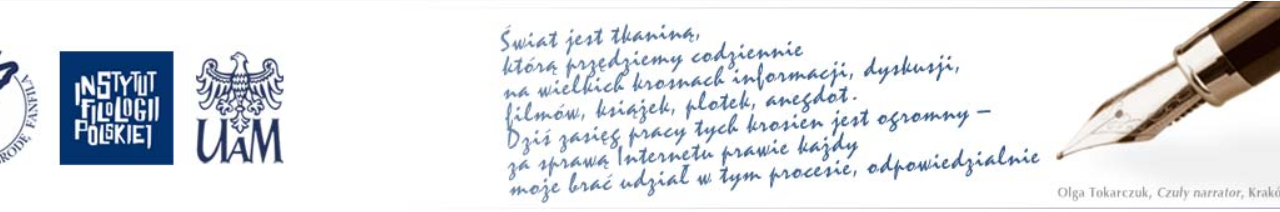 INSTYTUT
FILOLOGII
POLSKIEJ
UAM
Świat jest tkaniną,
którą przędziemy codziennie
na wielkich krosnach informacji, dyskusji,
filmów, książek, plotek, anegdot.
Dziś zasięg pracy tych krosien jest ogromny –
za sprawą Internetu prawie każdy
może brać udział w tym procesie, odpowiedzialnie
Olga Tokarczuk, Czuły narrator,